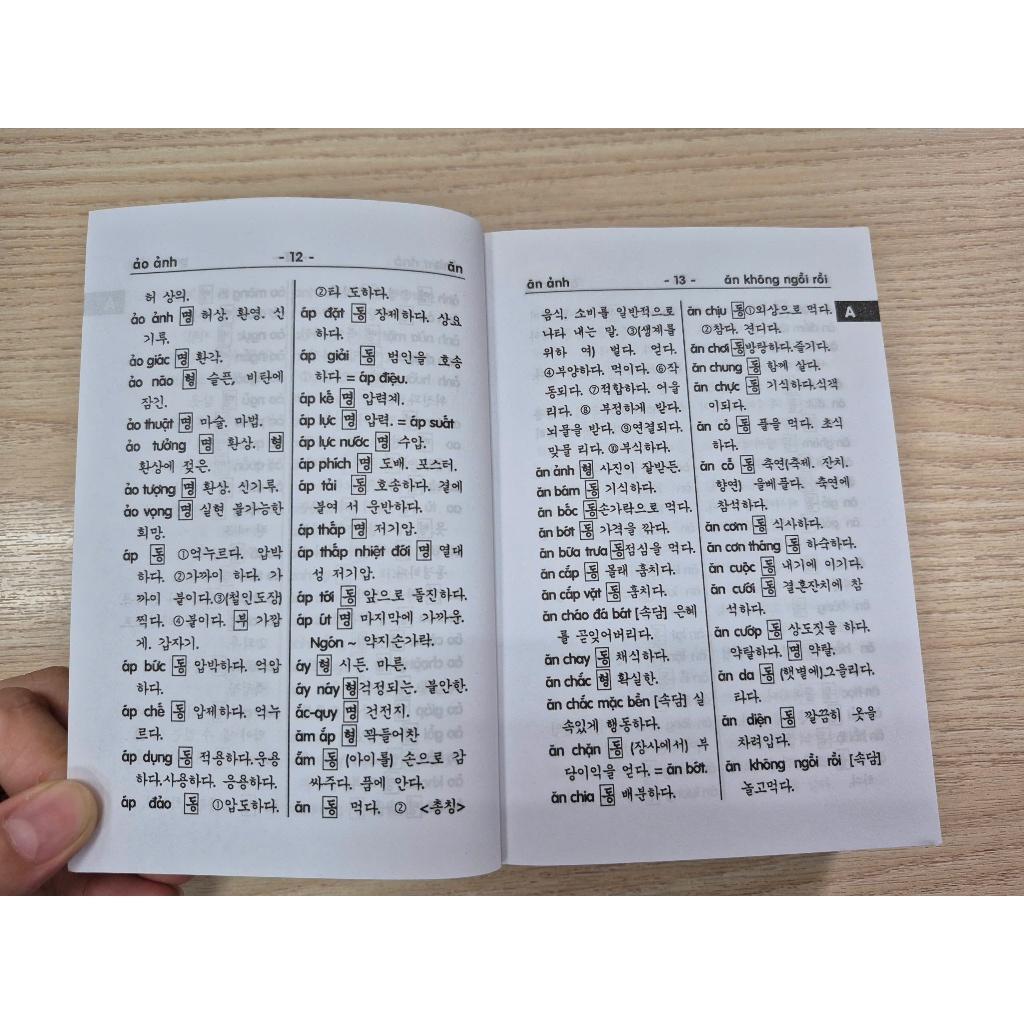 ảo ảnh - 12 - ăn
허 상의.
ảo ảnh 명 허상. 환영. 신
기루.
ảo giác 명 환각.
ảo não 형 슬픈, 비탄에
잠긴.
ảo thuật 명 마술. 마법.
ảo tưởng 명 환상. 형
환상에 젖은.
ảo tượng 명 환상. 신기루.
ảo vọng 명 실현 불가능한
희망.
áp 동 ①억누르다. 압박
하다. ②가까이 하다. 가
까이 붙이다.③(철인도장)
찍다. ④붙이다. 부 가깝
게. 갑자기.
áp bức 동 압박하다. 억압
하다.
áp chế 동 압제하다. 억누
르다.
áp dụng 동 적용하다.운용
하다.사용하다. 응용하다.
áp đảo 동 ①압도하다.
②타 도하다.
áp đặt 동 장제하다. 상요
하다.
áp giải 동 범인을 호송
하다 = áp điệu.
áp kế 명 압력계.
áp lực 명 압력. = áp suất
áp lực nước 명 수압.
áp phích 명 도배. 포스터.
áp tải 동 호송하다. 곁에
붙여 서 운반하다.
áp thấp 명 저기압.
áp thấp nhiệt đới 명 열대
성 저기압.
áp tới 동 앞으로 돌진하다.
áp út 명 마지막에 가까운.
Ngón ~ 약지손가락.
áy 형 시든. 마른.
áy náy 형걱정되는. 불안한.
ắc-quy 명 건전지.
ăm ắp 형 꽉들어찬
ẵm 동 (아이를) 손으로 감
싸주다. 품에 안다.
ăn 동 먹다. ② <총칭>
ăn ảnh - 13 - ăn không ngồi rồi
음식. 소비를 일반적으로
나타 내는 말. ③(생계를
위하 여) 벌다. 얻다.
④부양하다. 먹이다. ⑥작
동되다. ⑦적합하다. 어울
리다. ⑧ 부정하게 받다.
뇌물을 받다. ⑨연결되다.
맞물 리다. ⑩부식하다.
ăn ảnh 형 사진이 잘받는.
ăn bám 동 기식하다.
ăn bốc 동손가락으로 먹다.
ăn bớt 동 가격을 깎다.
ăn bữa trưa 동점심을 먹다.
ăn cắp 동 몰래 훔치다.
ăn cắp vặt 동 훔치다.
ăn cháo đá bát [속담] 은혜
를 곧잊어버리다.
ăn chay 동 채식하다.
ăn chắc 형 확실한.
ăn chắc mặc bền [속담] 실
속있게 행동하다.
ăn chặn 동 (장사에서) 부
당이익을 얻다. = ăn bớt.
ăn chia 동 배분하다.
ăn chịu 동①외상으로 먹다.
②참다. 견디다.
ăn chơi 동방탕하다.즐기다.
ăn chung 동 함께 살다.
ăn chực 동 기식하다.식객
이되다.
ăn cỏ 동 풀을 먹다. 초식
하다.
ăn cỗ 동 축연(축제. 잔치.
향연) 을베풀다. 축연에
참석하다.
ăn cơm 동 식사하다.
ăn cơn tháng 동 하숙하다.
ăn cuộc 동 내기에 이기다.
ăn cưới 동 결혼잔치에 참
석하다.
ăn cướp 동 상도짓을 하다.
약탈하다. 명 약탈.
ăn da 동 (햇볕에)그을리다.
타다.
ăn diện 동 깔끔히 옷을
차려입다.
ăn không ngồi rồi [속담]
놀고먹다.
A